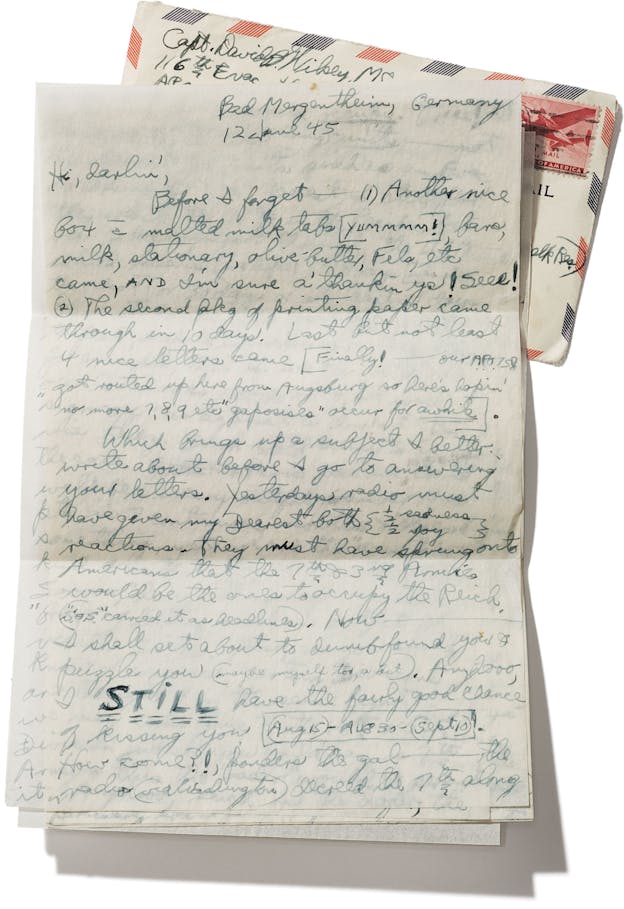 Capt. David
116th Evac
AP
AIL
MAIL
OF AMERICA
Bad Mergentheim, Germany
12 June 45
Hi, darlin',
Before I forget — (1) Another nice
box c̄ malted milk tabs [YUMMMM!], bars,
milk, stationary, olive-butter, Fels, etc
came, AND I'm sure a' thankin ya! Seee!
(2) The second pkg of printing paper came
through in 10 days. Last but not least
4 nice letters came [Finally! — our APO 758
got routed up here from Augsburg so here's hopin'
no more 7, 8, 9 etc "gaposises" occur for awhile].
Which brings up a subject I better
write about before I go to answering
your letters. Yesterdays radio must
have given my Dearest both { ½ sadness
½ joy }
reactions. They must have sprung onto
Americans that the 7th & 3rd Armies
would be the ones to occupy the Reich.
carried it as deadlines). Now —
I shall set about to dumbfound you &
puzzle you (maybe myself too, a bit). Anyhooo,
I STILL have the fairly good chance
of kissing you [Aug 15 - Aug 30 - Sept 10]!
How come?!, ponders the gal — the
radio (Washington) decreed the 7th along